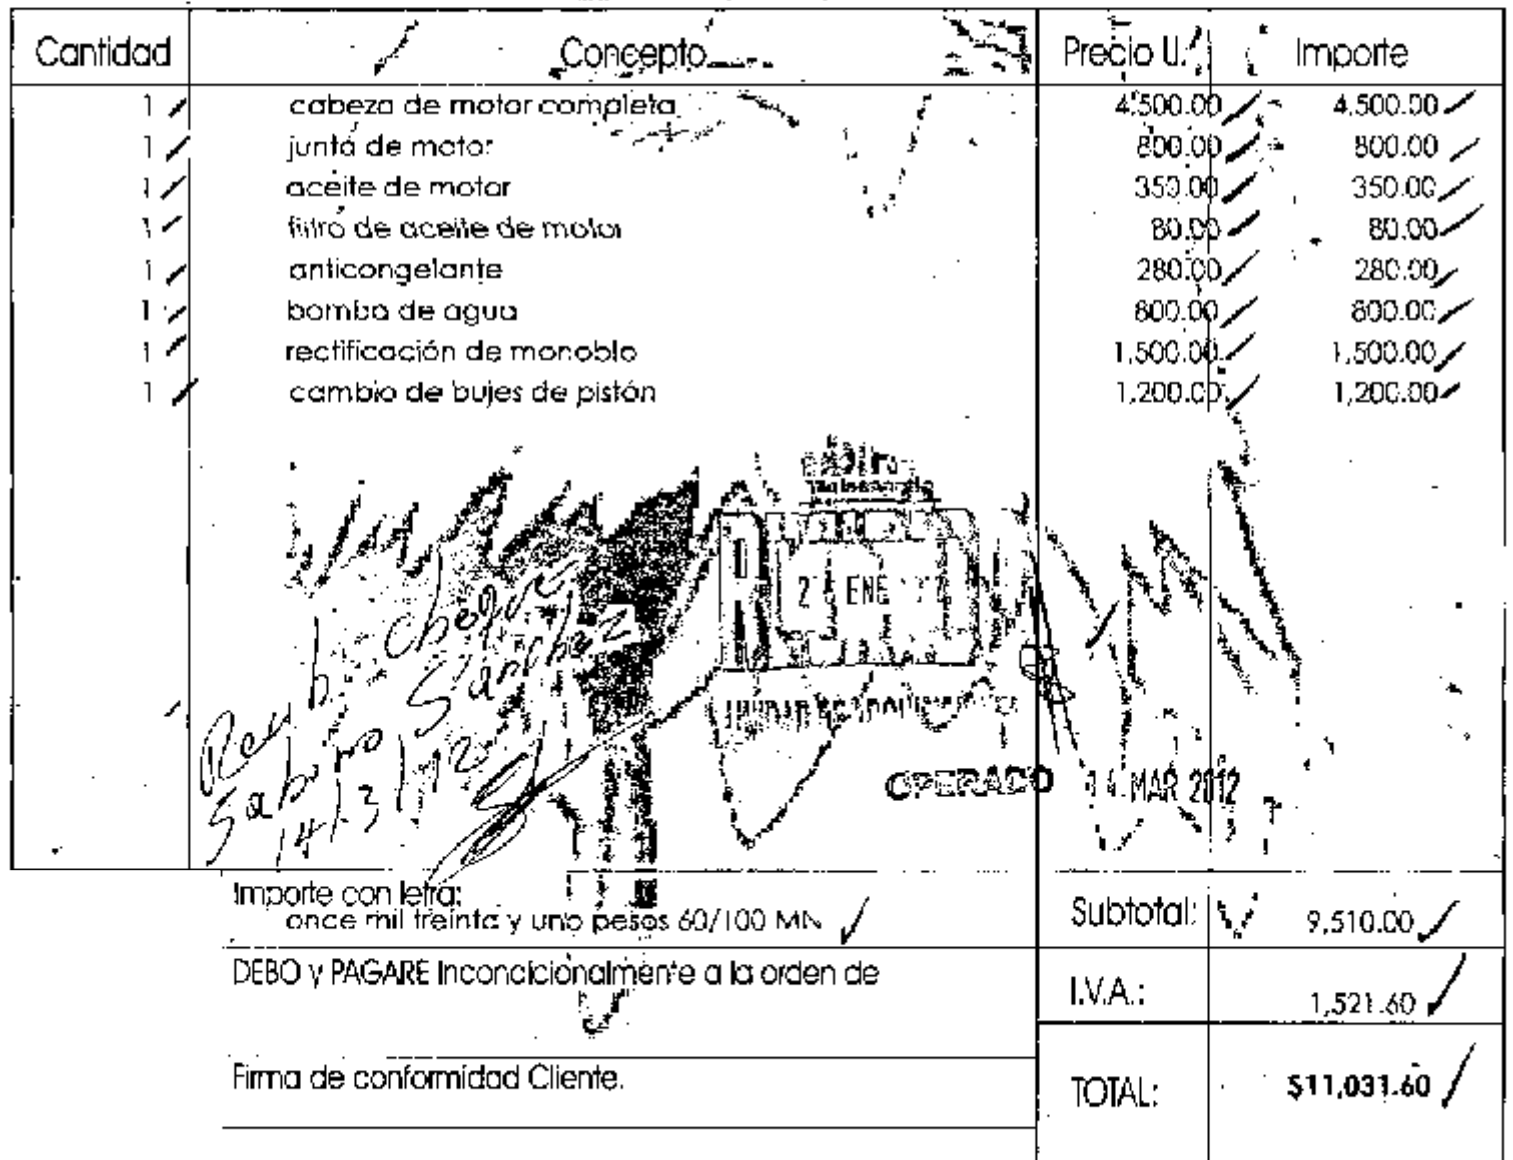 Cantidad Concepto Precio U. Importe
1 cabeza de motor completa 4,500.00 4,500.00
1 junta de motor 800.00 800.00
1 aceite de motor 350.00 350.00
1 filtro de aceite de motor 80.00 80.00
1 anticongelante 280.00 280.00
1 bomba de agua 800.00 800.00
1 rectificación de monoblo 1,500.00 1,500.00
1 cambio de bujes de pistón 1,200.00 1,200.00
ENE
Cheque
Sabino Sanchez
14/3/12
OPERADO 14 MAR 2012
Importe con letra:
once mil treinta y uno pesos 60/100 MN
Subtotal: 9,510.00
DEBO y PAGARE Incondicionalmente a la orden de
I.V.A.: 1,521.60
Firma de conformidad Cliente.
TOTAL: $11,031.60